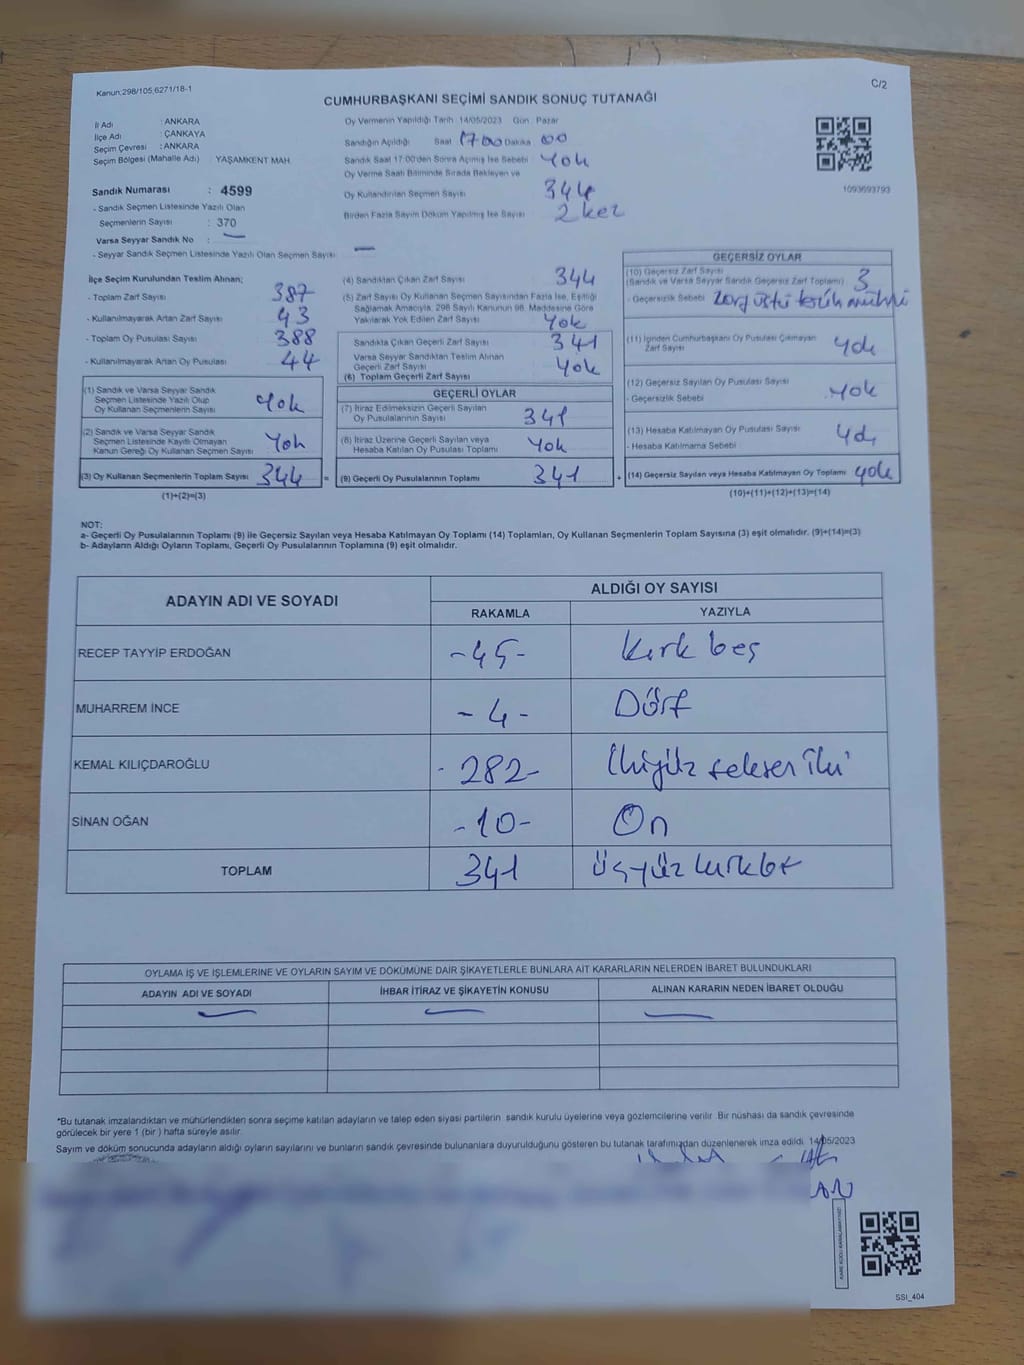 Kanun;298/105,6271/18-1
C/2
CUMHURBAŞKANI SEÇİMİ SANDIK SONUÇ TUTANAĞI
İl Adı : ANKARA
İlçe Adı : ÇANKAYA
Seçim Çevresi : ANKARA
Seçim Bölgesi (Mahalle Adı) : YAŞAMKENT MAH.
Sandık Numarası : 4599
- Sandık Seçmen Listesinde Yazılı Olan
Seçmenlerin Sayısı : 370
Varsa Seyyar Sandık No :
- Seyyar Sandık Seçmen Listesinde Yazılı Olan Seçmen Sayısı
Oy Vermenin Yapıldığı Tarih: 14/05/2023 Gün: Pazar
Sandığın Açıldığı Saat 17.00 Dakika 00
Sandık Saat 17:00'den Sonra Açılmış İse Sebebi Yok
Oy Verme Saati Bitiminde Sırada Bekleyen ve
Oy Kullandırılan Seçmen Sayısı 344
Birden Fazla Sayım Döküm Yapılmış İse Sayısı 2 kez
1093693793
İlçe Seçim Kurulundan Teslim Alınan;
- Toplam Zarf Sayısı 387
- Kullanılmayarak Artan Zarf Sayısı 43
- Toplam Oy Pusulası Sayısı 388
- Kullanılmayarak Artan Oy Pusulası 44
(1) Sandık ve Varsa Seyyar Sandık
Seçmen Listesinde Yazılı Olup
Oy Kullanan Seçmenlerin Sayısı Yok
(2) Sandık ve Varsa Seyyar Sandık
Seçmen Listesinde Kayıtlı Olmayan
Kanun Gereği Oy Kullanan Seçmen Sayısı Yok
(3) Oy Kullanan Seçmenlerin Toplam Sayısı 344 =
(1)+(2)=(3)
(4) Sandıktan Çıkan Zarf Sayısı 344
(5) Zarf Sayısı Oy Kullanan Seçmen Sayısından Fazla İse, Eşitliği
Sağlamak Amacıyla, 298 Sayılı Kanunun 98. Maddesine Göre
Yakılarak Yok Edilen Zarf Sayısı Yok
Sandıkta Çıkan Geçerli Zarf Sayısı 341
Varsa Seyyar Sandıktan Teslim Alınan
Geçerli Zarf Sayısı Yok
(6) Toplam Geçerli Zarf Sayısı
GEÇERLİ OYLAR
(7) İtiraz Edilmeksizin Geçerli Sayılan
Oy Pusulalarının Sayısı 341
(8) İtiraz Üzerine Geçerli Sayılan veya
Hesaba Katılan Oy Pusulası Toplamı Yok
(9) Geçerli Oy Pusulalarının Toplamı 341 +
GEÇERSİZ OYLAR
(10) Geçersiz Zarf Sayısı
(Sandık ve Varsa Seyyar Sandık Geçersiz Zarf Toplamı) 3
- Geçersizlik Sebebi
(11) İçinden Cumhurbaşkanı Oy Pusulası Çıkmayan
Zarf Sayısı Yok
(12) Geçersiz Sayılan Oy Pusulası Sayısı
- Geçersizlik Sebebi Yok
(13) Hesaba Katılmayan Oy Pusulası Sayısı
- Hesaba Katılmama Sebebi Yok
(14) Geçersiz Sayılan veya Hesaba Katılmayan Oy Toplamı Yok
(10)+(11)+(12)+(13)=(14)
NOT:
a- Geçerli Oy Pusulalarının Toplamı (9) ile Geçersiz Sayılan veya Hesaba Katılmayan Oy Toplamı (14) Toplamları, Oy Kullanan Seçmenlerin Toplam Sayısına (3) eşit olmalıdır. (9)+(14)=(3)
b- Adayların Aldığı Oyların Toplamı, Geçerli Oy Pusulalarının Toplamına (9) eşit olmalıdır.
ADAYIN ADI VE SOYADI
ALDIĞI OY SAYISI
RAKAMLA YAZIYLA
RECEP TAYYİP ERDOĞAN -45- Kırk beş
MUHARREM İNCE -4- Dört
KEMAL KILIÇDAROĞLU -282- İkiyüz seksen iki
SİNAN OĞAN -10- On
TOPLAM 341 üçyüz kırkbir
OYLAMA İŞ VE İŞLEMLERİNE VE OYLARIN SAYIM VE DÖKÜMÜNE DAİR ŞİKAYETLERLE BUNLARA AİT KARARLARIN NELERDEN İBARET BULUNDUKLARI
ADAYIN ADI VE SOYADI İHBAR İTİRAZ VE ŞİKAYETİN KONUSU ALINAN KARARIN NEDEN İBARET OLDUĞU
*Bu tutanak imzalandıktan ve mühürlendikten sonra seçime katılan adayların ve talep eden siyasi partilerin sandık kurulu üyelerine veya gözlemcilerine verilir. Bir nüshası da sandık çevresinde
görülecek bir yere 1 (bir) hafta süreyle asılır.
Sayım ve döküm sonucunda adayların aldığı oyların sayılarını ve bunların sandık çevresinde bulunanlara duyurulduğunu gösteren bu tutanak tarafımızdan düzenlenerek imza edildi. 14/05/2023
SSI_404